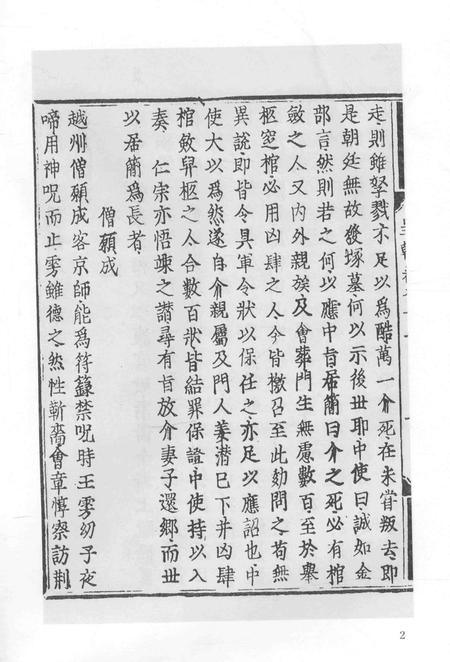 走則雖孥戮亦足以為酷萬一介死在未嘗叛去即
是朝廷無故發塚墓何以示後世耶中使曰誠如金
部言然則若之何以應中旨居簡曰介之死必有棺
斂之人又內外親族及會葬門生無慮數百至於舉
柩窆棺必用凶肆之人今皆檄召至此劾問之苟無
異說即皆令具軍令狀以保任之亦足以應詔也中
使大以為然遂自介親屬及門人姜潛已下并凶肆
棺斂舁柩之人合數百狀皆結罪保證中使持以入
奏 仁宗亦悟竦之譖尋有旨放介妻子還鄉而世
以居簡為長者
僧願成
越州僧願成客京師能為符籙禁呪時王雱幼子夜
啼用神呪而止雱雖德之然性靳嗇會章惇察訪荆
2